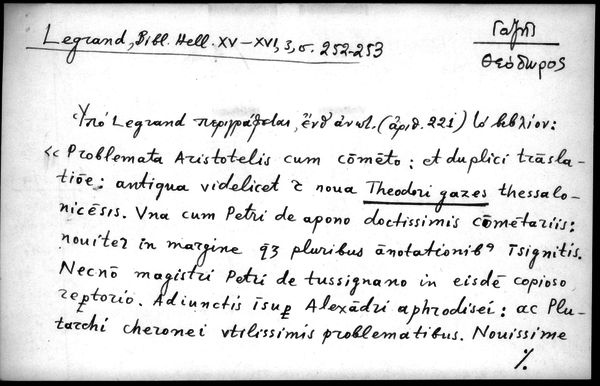 Legrand, Bibl. Hell. XV–XVI, 3, σ. 252-253
Γαζῆς
Θεόδωρος
Ὑπὸ Legrand περιγράφεται, ἔνθ' ἀνωτ. (ἀριθ. 221) τὸ βιβλίον:
«Problemata Aristotelis cum cōmēto: et duplici trāsla-
tiōe: antiqua videlicet ⁊ noua Theodori gazes thessalo-
nicēsis. Vna cum Petri de apono doctissimis cōmētariis:
nouiter in margine q3 pluribus ānotationibꝰ īsignitis.
Necnō magistri Petri de tussignano in eisdē copioso
reꝑtorio. Adiunctis īsuꝑ Alexādri aphrodisei: ac Plu-
tarchi cheronei vtilissimis problematibus. Nouissime
%.